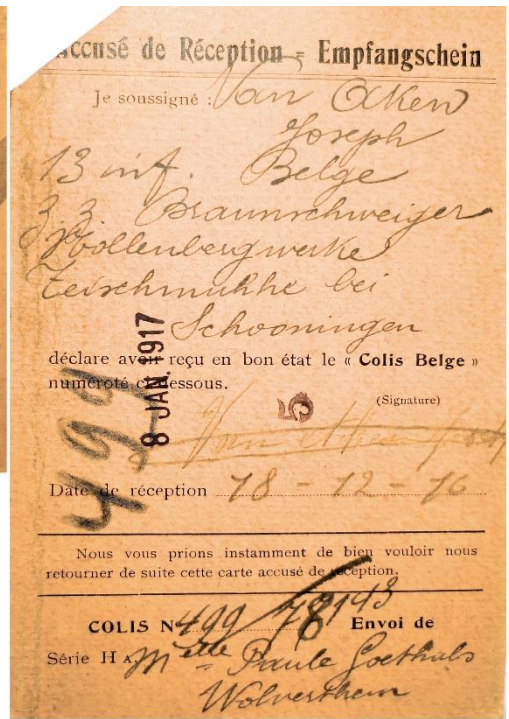 Accusé de Réception = Empfangschein
Je soussigné : Van Aken
Joseph
13 inf. Belge
Braunschweiger
bei
Schooningen
déclare avoir reçu en bon état le « Colis Belge »
numéroté ci-dessous.
8 JAN. 1917
5
(Signature)
499
Van
Date de réception 18 - 12 - 16
Nous vous prions instamment de bien vouloir nous
retourner de suite cette carte accusé de réception.
COLIS N 499 / 78193 Envoi de
Série H A. Melle Paule Goethals
Wolverthem